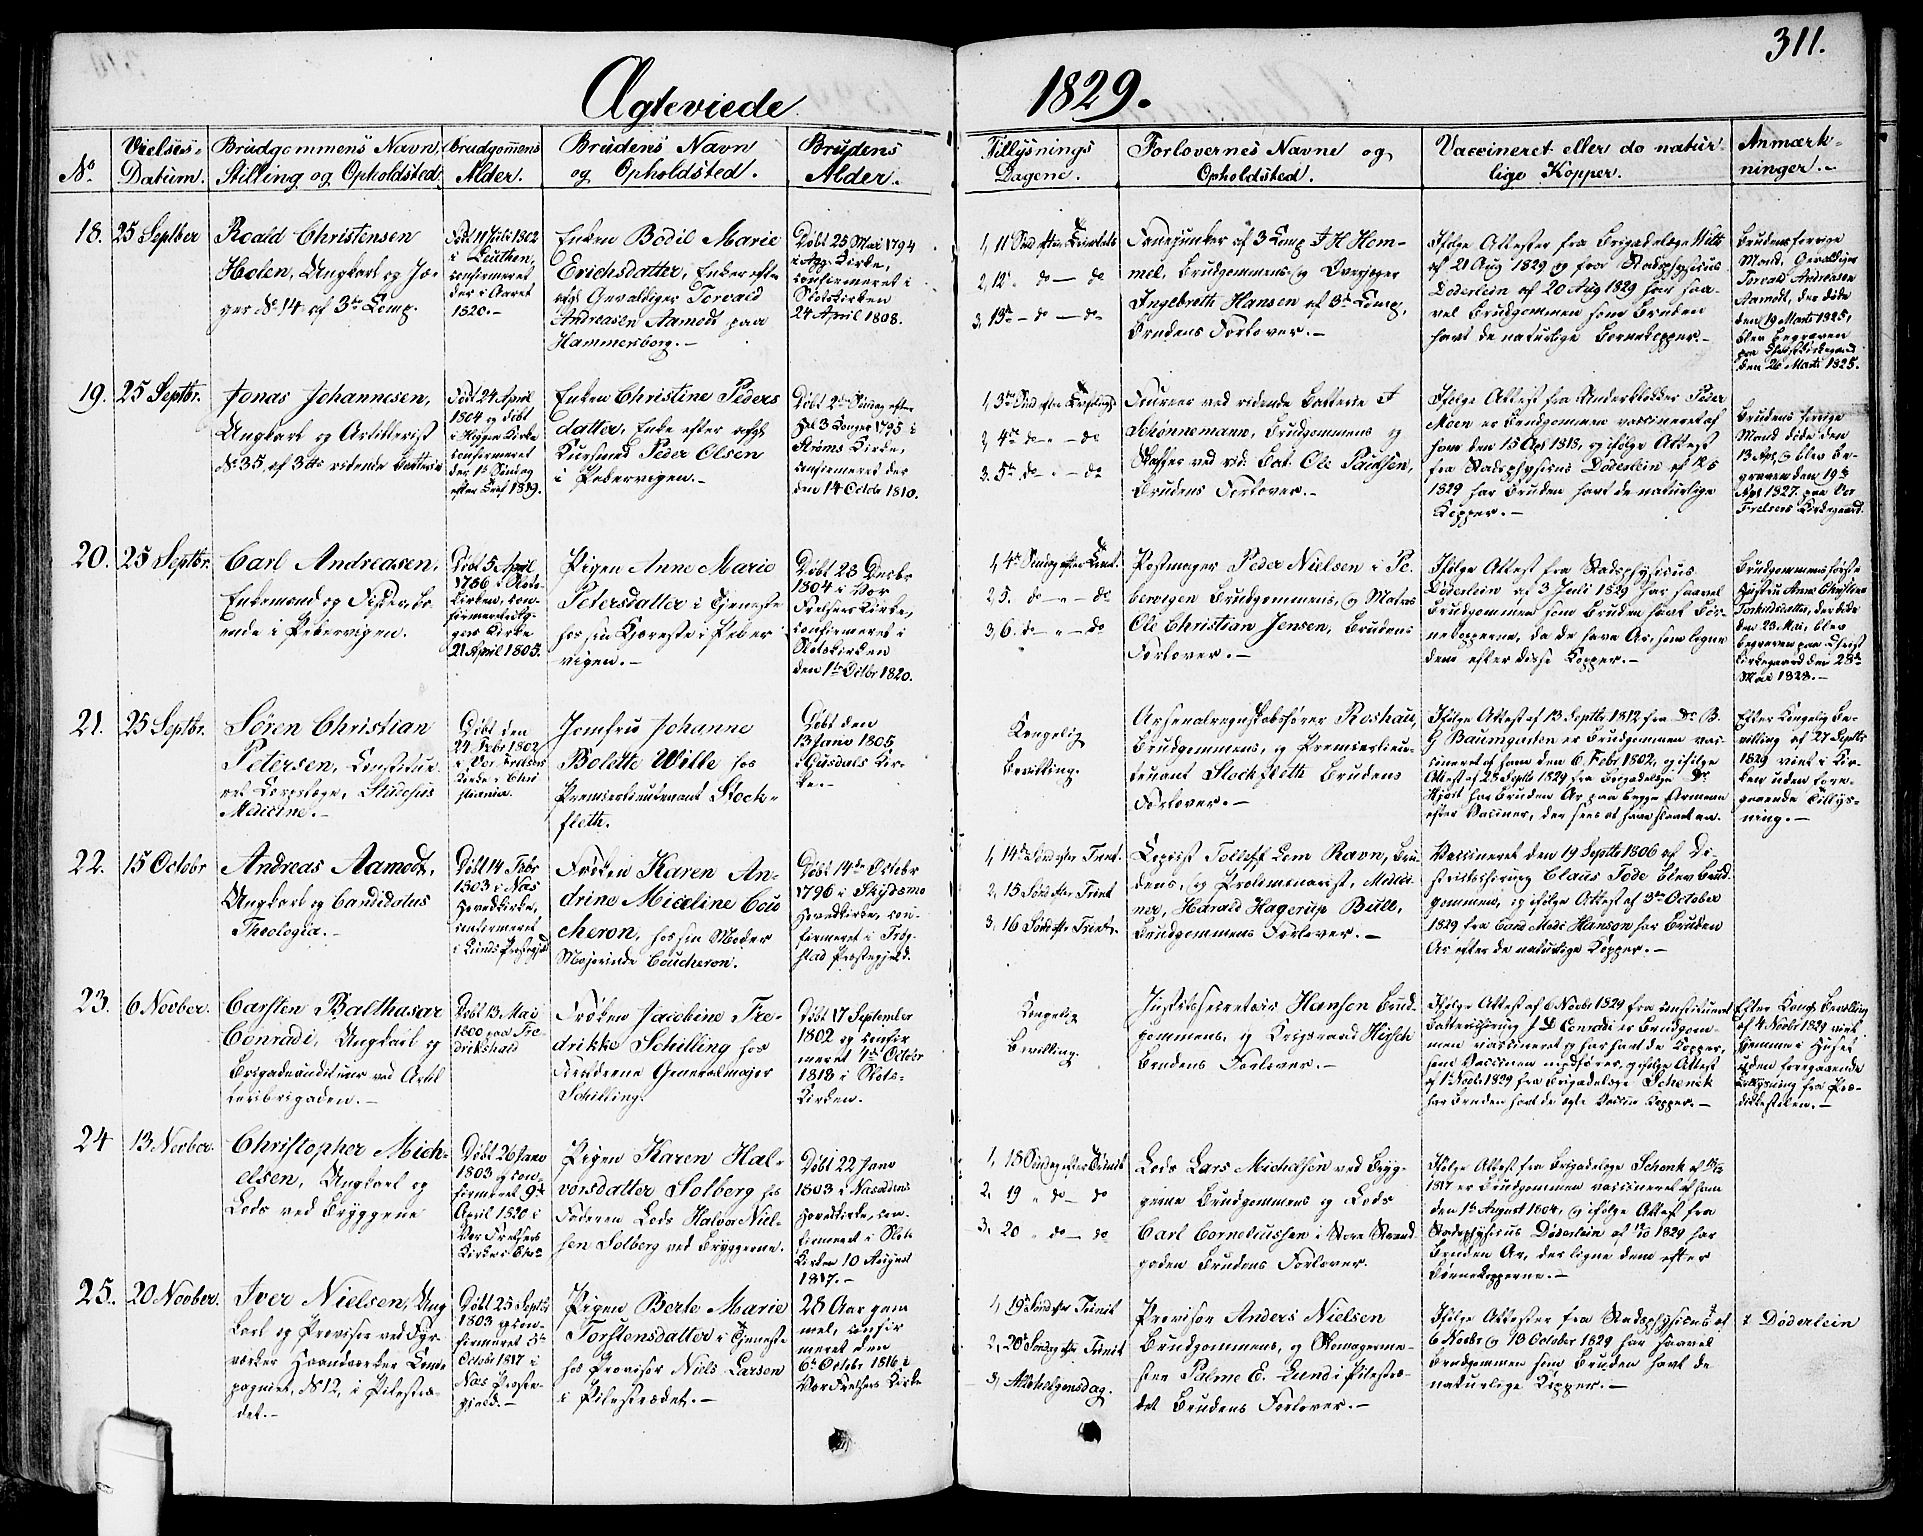 311.
Ægteviede 1829.
No.
Vielses-
Datum.
Brudgommens Navn,
Stilling og Opholdsted.
Brudgomens
Alder.
Brudens Navn
og Opholdsted.
Brudens
Alder.
Tillysnings
Dagene.
Forlovernes Navne og
Opholdsted.
Vaccineret eller do natur-
lige Kopper.
Anmærk-
ninger.
18. 25 Septber
Roald Christensen
Holen, Ungkarl og Jæ-
ger No 14 af 3die Comp.
Født 11 Juli 1802
i Leuthen,
confirmeret
der i Aaret
1820.
Enken Bodil Marie
Erichsdatter, Enke efter
afgl Gevaldiger Torvald
Andreasen Aamodt paa
Hammersborg.
Døbt 25 Mai 1794
i Agg. Kirke,
confirmeret i
Slotskirken
24 April 1808.
Fanejunker af 3 Comp J H Hem-
mel, Brudgommens, og Overjæger
Ingebreth Hansen af 3die Comp,
Brudens Forlover.
Ifølge Attester fra Brigadelæge
af 21 Aug 1829 og fra Stadsphysicus
Døderlein af 20 Aug 1829 har saa-
vel Brudgommen som Bruden
havt de naturlige Børnekopper.
Brudens forrige
Mand, Gevaldiger
Torvald Andreasen
Aamodt, der døde
den 19 Marts 1825,
blev begraven
paa
den 26 Marts 1825.
19. 25 Septbr.
Jonas Johannesen,
Ungkarl og Artillerist
No 35, af 3die ridende Batterie
Født 24 April
1804 og døbt
i Kirke
confirmeret
der 1ste Søndag
efter 1819.
Enken Christine Peders
datter, Enke efter afgl
Peder Olsen
i Pebervigen.
Døbt 2den Søndag efter
Hel 3 Konger 1795 i
Strøms Kirke,
confirmeret der
den 14 Octobr 1810.
Foureer ved ridende Batterie J
Schønnemann, Brudgommens og
ved rid. Bat. Ole Paulsen,
Brudens Forlover.
Ifølge Attest fra Peder
Moen er Brudgommen vaccineret af
ham den 15 1815, og ifølge Attest
fra Stadsphysicus Døderlein af
1829 har Bruden havt de naturlige
Kopper.
Brudens forrige
Mand døde den
13 Apl, og blev be-
graven den 19de
Apl 1827 paa Vor
Frelsers Kirkegaard.
20. 25 Septbr.
Carl Andreasen,
Enkemand og Fisker, bo-
ende i Pebervigen.
Døbt 5 April
1786 i Slots-
kirken, con-
firmeret i Ag-
gers Kirke
21 April 1805.
Pigen Anne Marie
Petersdatter i Tjeneste
hos sin Kjæreste i Peber
vigen.
Døbt 23 Decbr
1804 i Vor
Frelsers Kirke,
confirmeret i
Slotskirken
den 1ste Octbr 1820.
Peder Nielsen i Pe
bervigen Brudgommens, og Matros
Ole Christian Jensen, Brudens
Forlover.
Ifølge Attest fra Stadsphysicus
Døderlein af 3 Juli 1829 har saavel
Brudgommen som Bruden havt Bør-
nekopperne, da de have Ar, som ligne
dem efter disse Kopper.
Brudgommens første
Hustru Anne Christine
datter, der døde
den 23 Mai, blev
begraven paa Christ
Kirkegaard den 28de
Mai 1828.
21. 25 Septbr.
Søren Christian
Petersen, Constitue-
ret Corpslæge, Studiosus
Medicinæ.
Døbt den
24 Febr 1802
i Vor Frelsers
Kirke i Chri
stiania.
Jomfru Johanne
Bolette Wille hos
Premierlieutenant Stock-
fleth.
Døbt den
13 Janv 1805
i Kir-
ke.
Kongelig
Bevilling.
Arsenalregnskabsfører Roshau,
Brudgommens, og Premierlieu-
tenant Stockfleth Brudens
Forlover.
Ifølge Attest af 13 Septbr 1812 fra Dr B.
G Baumgarten er Brudgommen vac-
cineret af ham den 6 Febr 1802, og ifølge
Attest af 23 Septbr 1829 fra Brigadelæge Dr
Hjort har Bruden Ar paa begge Armene
efter Vaccinen, der sees at have
Efter Kongelig Be-
villing af 27 Septbr
1829 viet i Kir-
ken uden fore-
gaaende Tillys-
ning.
22. 15 Octobr
Andreas Aamodt,
Ungkarl og Candidatus
Theologiæ.
Døbt 14 Febr
1803 i Næs
Hovedkirke,
confirmeret
i Lunds Præstegjeld
Frøken Karen An-
drine Micaline Cou
cheron, hos sin Moder
Majorinde Coucheron.
Døbt 14de Octobr
1796 i Skjedsmo
Hovedkirke, con-
firmeret i Trøg-
stad Præstegjeld.
1, 14de Sønd efter Trint.
2, 15 Sønd efter Trint
3, 16 Sønd efter Trint.
Copiist Tolleff Lem Ravn, Bru-
dens, og Medici-
ner, Harald Hagerup Bull,
Brudgommens Forlover.
Vaccineret den 19 Septbr 1806 af Di
strictschirurg Claus Tode blev Brud-
gommen, og ifølge Attest af 3die October
1829 fra Cand Med: Hanson har Bruden
Ar efter de naturlige Kopper.
23. 6 Novber.
Carsten Balthasar
Conradi, Ungkarl og
Brigadeauditeur ved Artil
leribrigaden.
Døbt 13 Mai
1800 paa Fre
drikshald
Frøken Jacobine Fre-
drikke Schilling hos
Faderen Generalmajor
Schilling.
Døbt 17 September
1802 og confir
meret 4de Octobr
1818 i Slots-
Kirken.
Kongelig
Bevilling.
Justitssecretair Hanson Brud
gommens, og Krigsraad Hirsch
Brudens Forlover.
Ifølge Attest af 6 Novbr 1829 fra constitueret
Battericirurg J. D Conradi er Brudgom-
men vaccineret og har havt de Kopper,
som Vaccinen medfører, og ifølge Attest
af 1ste Novbr 1829 fra Brigadelæge Schenck
har Bruden havt de ægte Vaccine Kopper.
Efter Kongl Bevilling
af 4 Novbr 1829 viet
hjemme i Huset
uden foregaaende
Tillysning fra Præ-
dikestolen.
24 13 Novber.
Christopher Mich-
elsen, Ungkarl og
Lods ved Bryggene
Døbt 26 Janv
1803 og con-
firmeret 9de
April 1820 i
Vor Frelsers
Kirke
Pigen Karen Hal-
vorsdatter Solberg hos
Faderen Lods Halvor Niel-
sen Solberg ved Bryggerne.
Døbt 22 Janv
1803 i Næsoddens
Hovedkirke, con-
firmeret i Slots
Kirken 10 August
1817.
1, 18 Søndag efter Trinit
2, 19 do do
3, 20 do do
Lods Lars Michelsen ved Bryg-
gerne Brudgommens og Lods
Carl Corneliussen i Store Strand-
gaden Brudens Forlover.
Ifølge Attest fra Brigadelæge Schenk af
1817 er Brudgommen vaccineret af ham
den 1ste August 1804, og ifølge Attest fra
Stadsphysicus Døderlein af 1829 har
Bruden Ar, der ligne dem efter
Børnekopperne.
25. 20 Novber.
Iver Nielsen, Ung
karl og Provisor ved Fyr
værker Haandværker Com-
pagniet, No 12, i Pilestræ-
det.
Døbt 25 Septbr
1803 og con-
firmeret 5te
Octobr 1817 i
Næs Præste-
gjeld.
Pigen Berte Marie
Torstensdatter i Tjeneste
hos Provisor Niels Larsen
i Pilestrædet.
28 Aar gam
mel, confir
meret den
6te Octobr 1816 i
Vor Frelsers Kirke
1, 19de Sønd efter Trinit
2, 20de Søndag efter Trinit
3, Allehelgensdag.
Provisor Anders Nielsen
Brudgommens, og Skomagerme-
ster Palme E. Lund i Pilestræ-
det Brudens Forlover.
Ifølge Attester fra Stadsphysicus af
6 Novbr og 10 October 1829 har saavel
Brudgommen som Bruden havt de
naturlige Kopper.
Døderlein